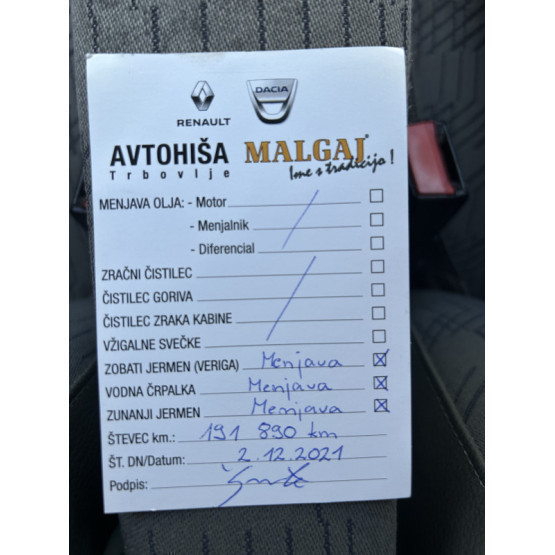 RENAULT
DACIA
AVTOHIŠA MALGAJ®
Trbovlje
Ime s tradicijo!
MENJAVA OLJA: - Motor
- Menjalnik
- Diferencial
ZRAČNI ČISTILEC
ČISTILEC GORIVA
ČISTILEC ZRAKA KABINE
VŽIGALNE SVEČKE
ZOBATI JERMEN (VERIGA) Menjava
VODNA ČRPALKA Menjava
ZUNANJI JERMEN Menjava
ŠTEVEC km.: 191 890 km
ŠT. DN/Datum: 2.12.2021
Podpis: